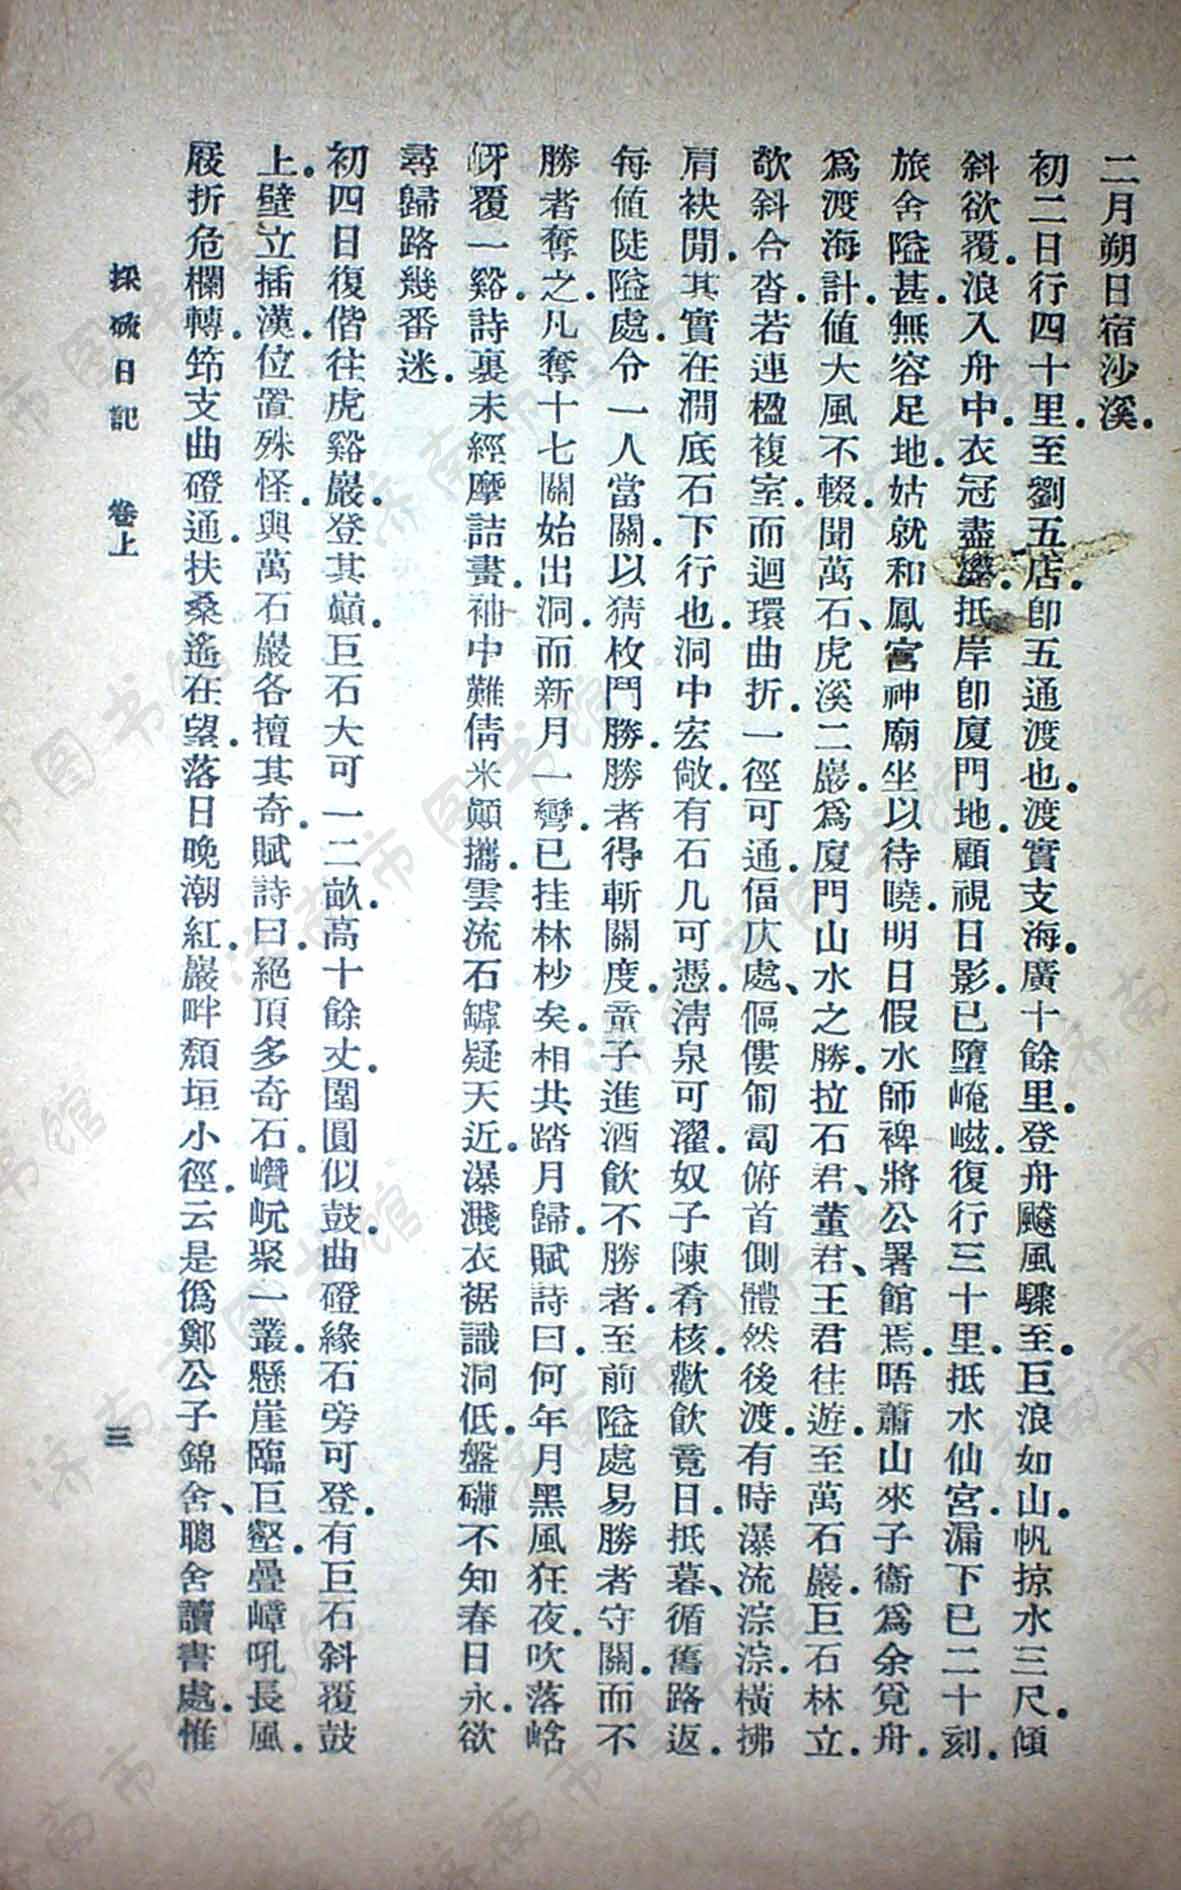 二月朔日宿沙溪。
初二日行四十里。至劉五店。卽五通渡也。渡實支海。廣十餘里。登舟颷風驟至。巨浪如山。帆掠水三尺。傾
斜欲覆。浪入舟中。衣冠盡濕。抵岸卽廈門地。顧視日影。已墮崦嵫。復行三十里。抵水仙宮。漏下已二十刻。
旅舍隘甚。無容足地。姑就和鳳宮神廟坐以待曉。明日假水師裨將公署館焉。晤蕭山來子衞爲余覓舟。
爲渡海計。値大風不輟。聞萬石、虎溪二巖。爲廈門山水之勝。拉石君、董君、王君往遊。至萬石巖。巨石林立。
欹斜合沓。若連楹複室。而迴環曲折。一徑可通。偪仄處、傴僂匍匐俯首側體然後渡。有時瀑流淙淙。橫拂
肩袂閒。其實在澗底石下行也。洞中宏敞。有石几可憑。淸泉可濯。奴子陳肴核歡飮竟日。抵暮、循舊路返。
每値陡隘處。令一人當關。以猜枚鬥勝。勝者得斬關度。童子進酒飮不勝者。至前隘處易勝者守關。而不
勝者奪之。凡奪十七關始出洞。而新月一彎。已挂林杪矣。相共踏月歸。賦詩曰。何年月黑風狂夜。吹落㟏
岈覆一谿。詩裏未經摩詰畫。袖中難倩米顚攜。雲流石罅疑天近。瀑濺衣裾識洞低。盤礴不知春日永。欲
尋歸路幾番迷。
初四日復偕往虎谿巖。登其巓。巨石大可一二畝。高十餘丈。圍圓似鼓。曲磴緣石旁可登。有巨石斜覆鼓
上。壁立插漢。位置殊怪。與萬石巖各擅其奇。賦詩曰。絕頂多奇石。巑岏聚一叢。懸崖臨巨壑。疊嶂吼長風。
屐折危欄轉。笻支曲磴通。扶桑遙在望。落日晚潮紅。巖畔頹垣小徑。云是僞鄭公子錦舍、聰舍讀書處。惟
採硫日記　卷上　三